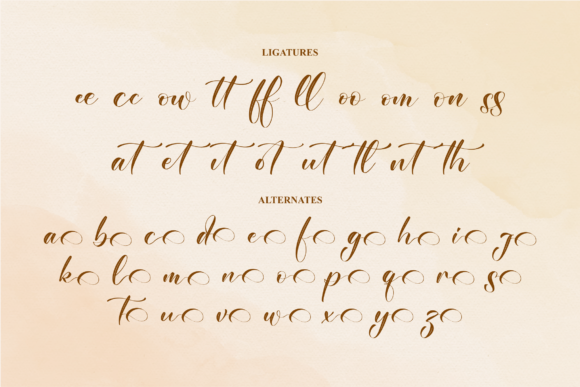 LIGATURES
ee cc ow tt ff ll oo om on ss
at et it ot ut tl nt th
ALTERNATES
a b c d e f g h i j
k l m n o p q r s
t u v w x y z